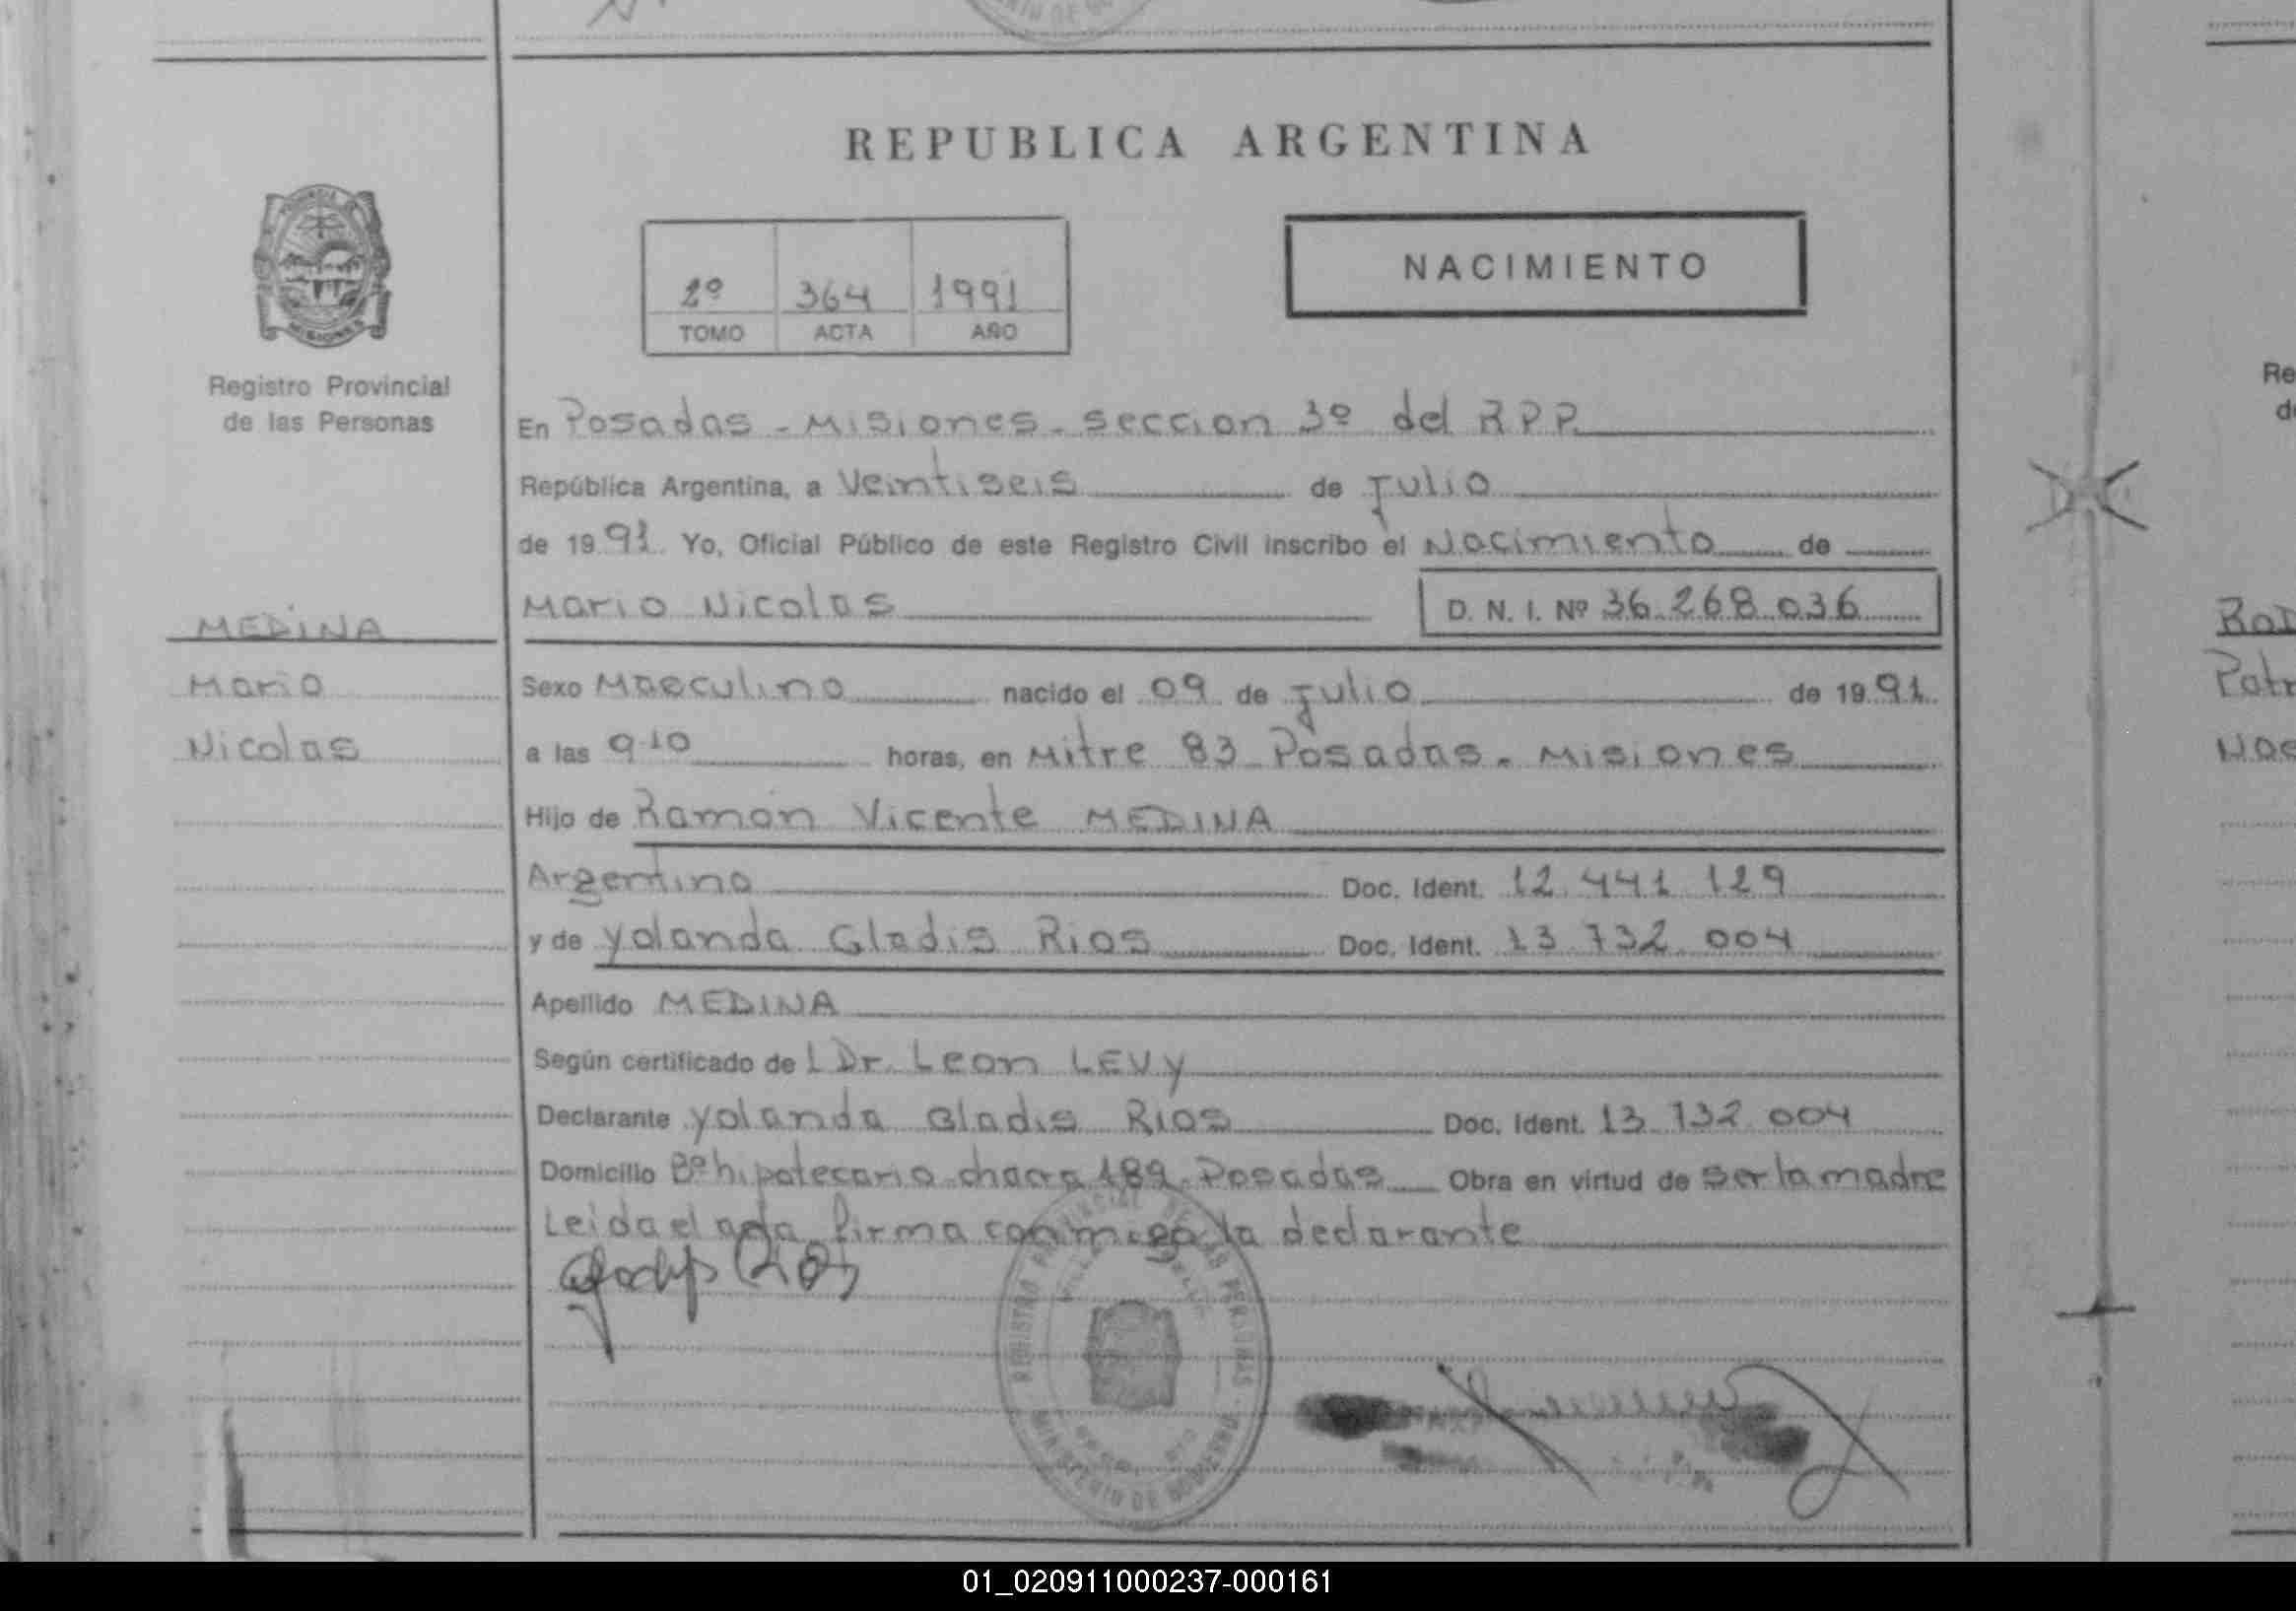 REPUBLICA ARGENTINA
NACIMIENTO
2º 364 1991
TOMO ACTA AÑO
Registro Provincial
de las Personas
En Posadas - Misiones - seccion 3º del RPP
República Argentina, a Veintiseis de julio
de 1991. Yo, Oficial Público de este Registro Civil inscribo el Nacimiento de
Mario Nicolas D. N. I. Nº 36.268.036
MEDINA
Mario
Nicolas
Sexo Masculino nacido el 09 de julio de 1991
a las 9.10 horas, en Mitre 83 Posadas - Misiones
Hijo de Ramon Vicente MEDINA
Argentino Doc. Ident. 12.441.129
y de Yolanda Gladis Rios Doc. Ident. 13.732.004
Apellido MEDINA
Según certificado del Dr. Leon LEVY
Declarante Yolanda Gladis Rios Doc. Ident. 13.732.004
Domicilio Bº hipotecario chacra 189 - Posadas Obra en virtud de ser la madre
Leida el acta firma conmigo la declarante
Gladys Rios
REGISTRO PROVINCIAL DE LAS PERSONAS
MINISTERIO DE GOBIERNO
01_020911000237-000161